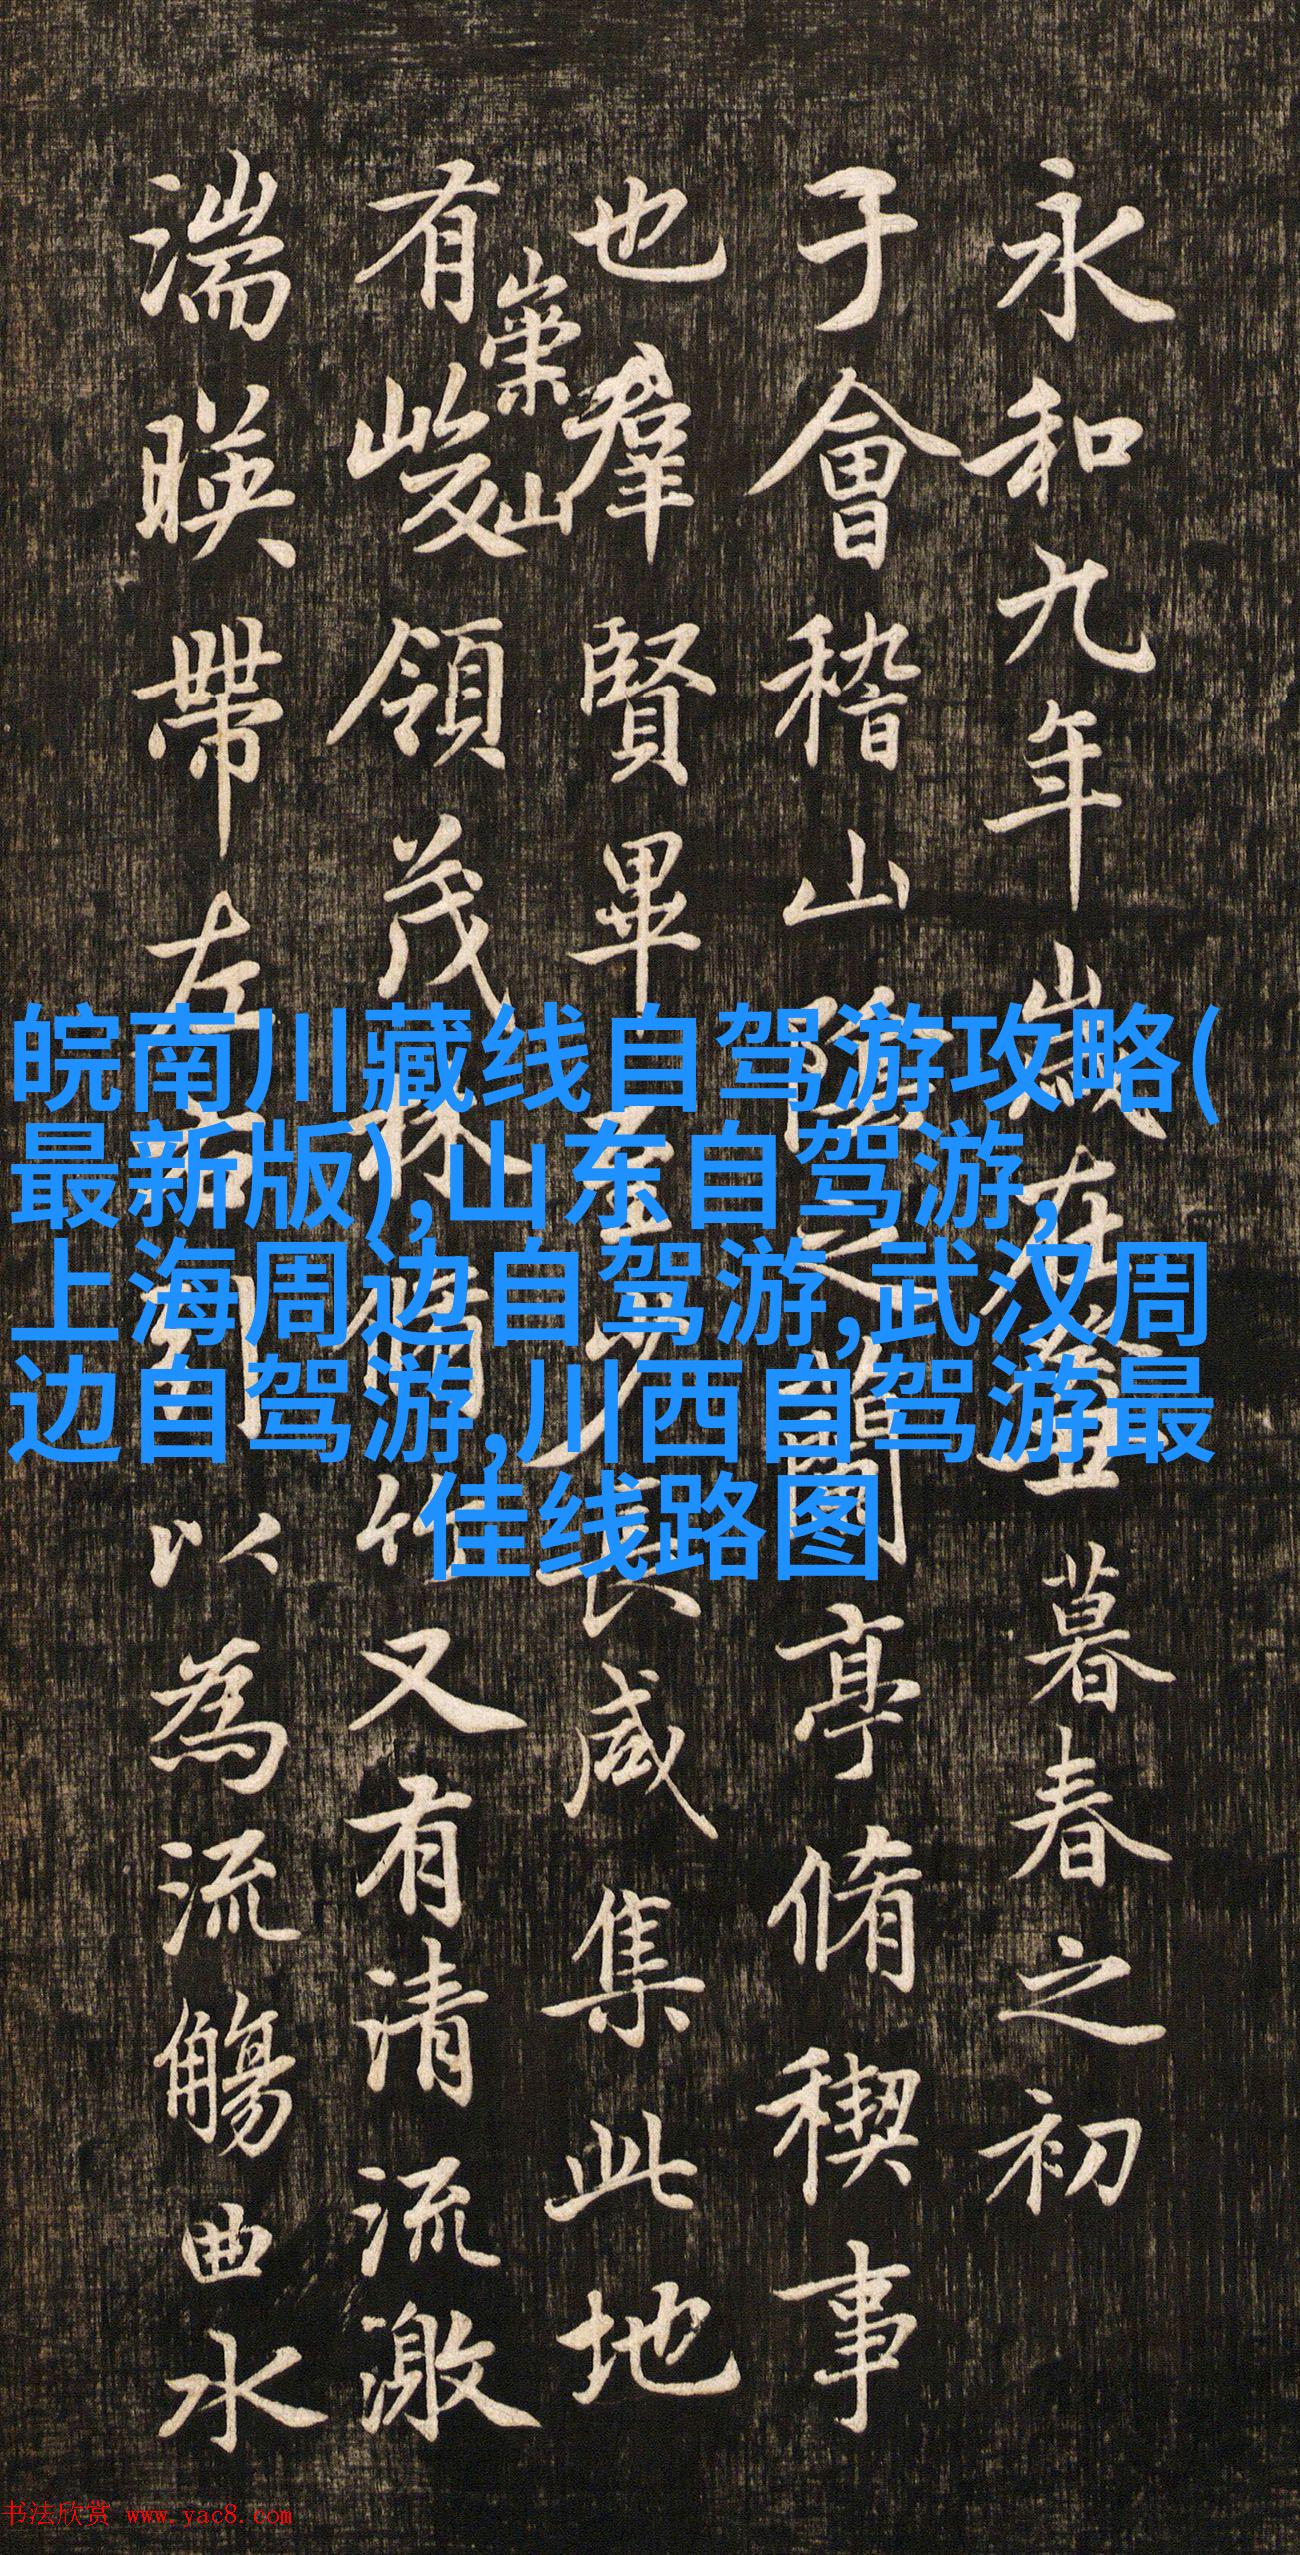 永和九年歲在癸丑暮春之初
于會稽山陰之蘭亭脩稧事
也羣賢畢至少長咸集此地
崇山
有峻領茂林脩竹又有清流激
湍暎帶左右引以為流觴曲水
皖南川藏线自驾游攻略(
最新版),山东自驾游,
上海周边自驾游,武汉周
边自驾游,川西自驾游最
佳线路图
书法欣赏 www.yac8.com